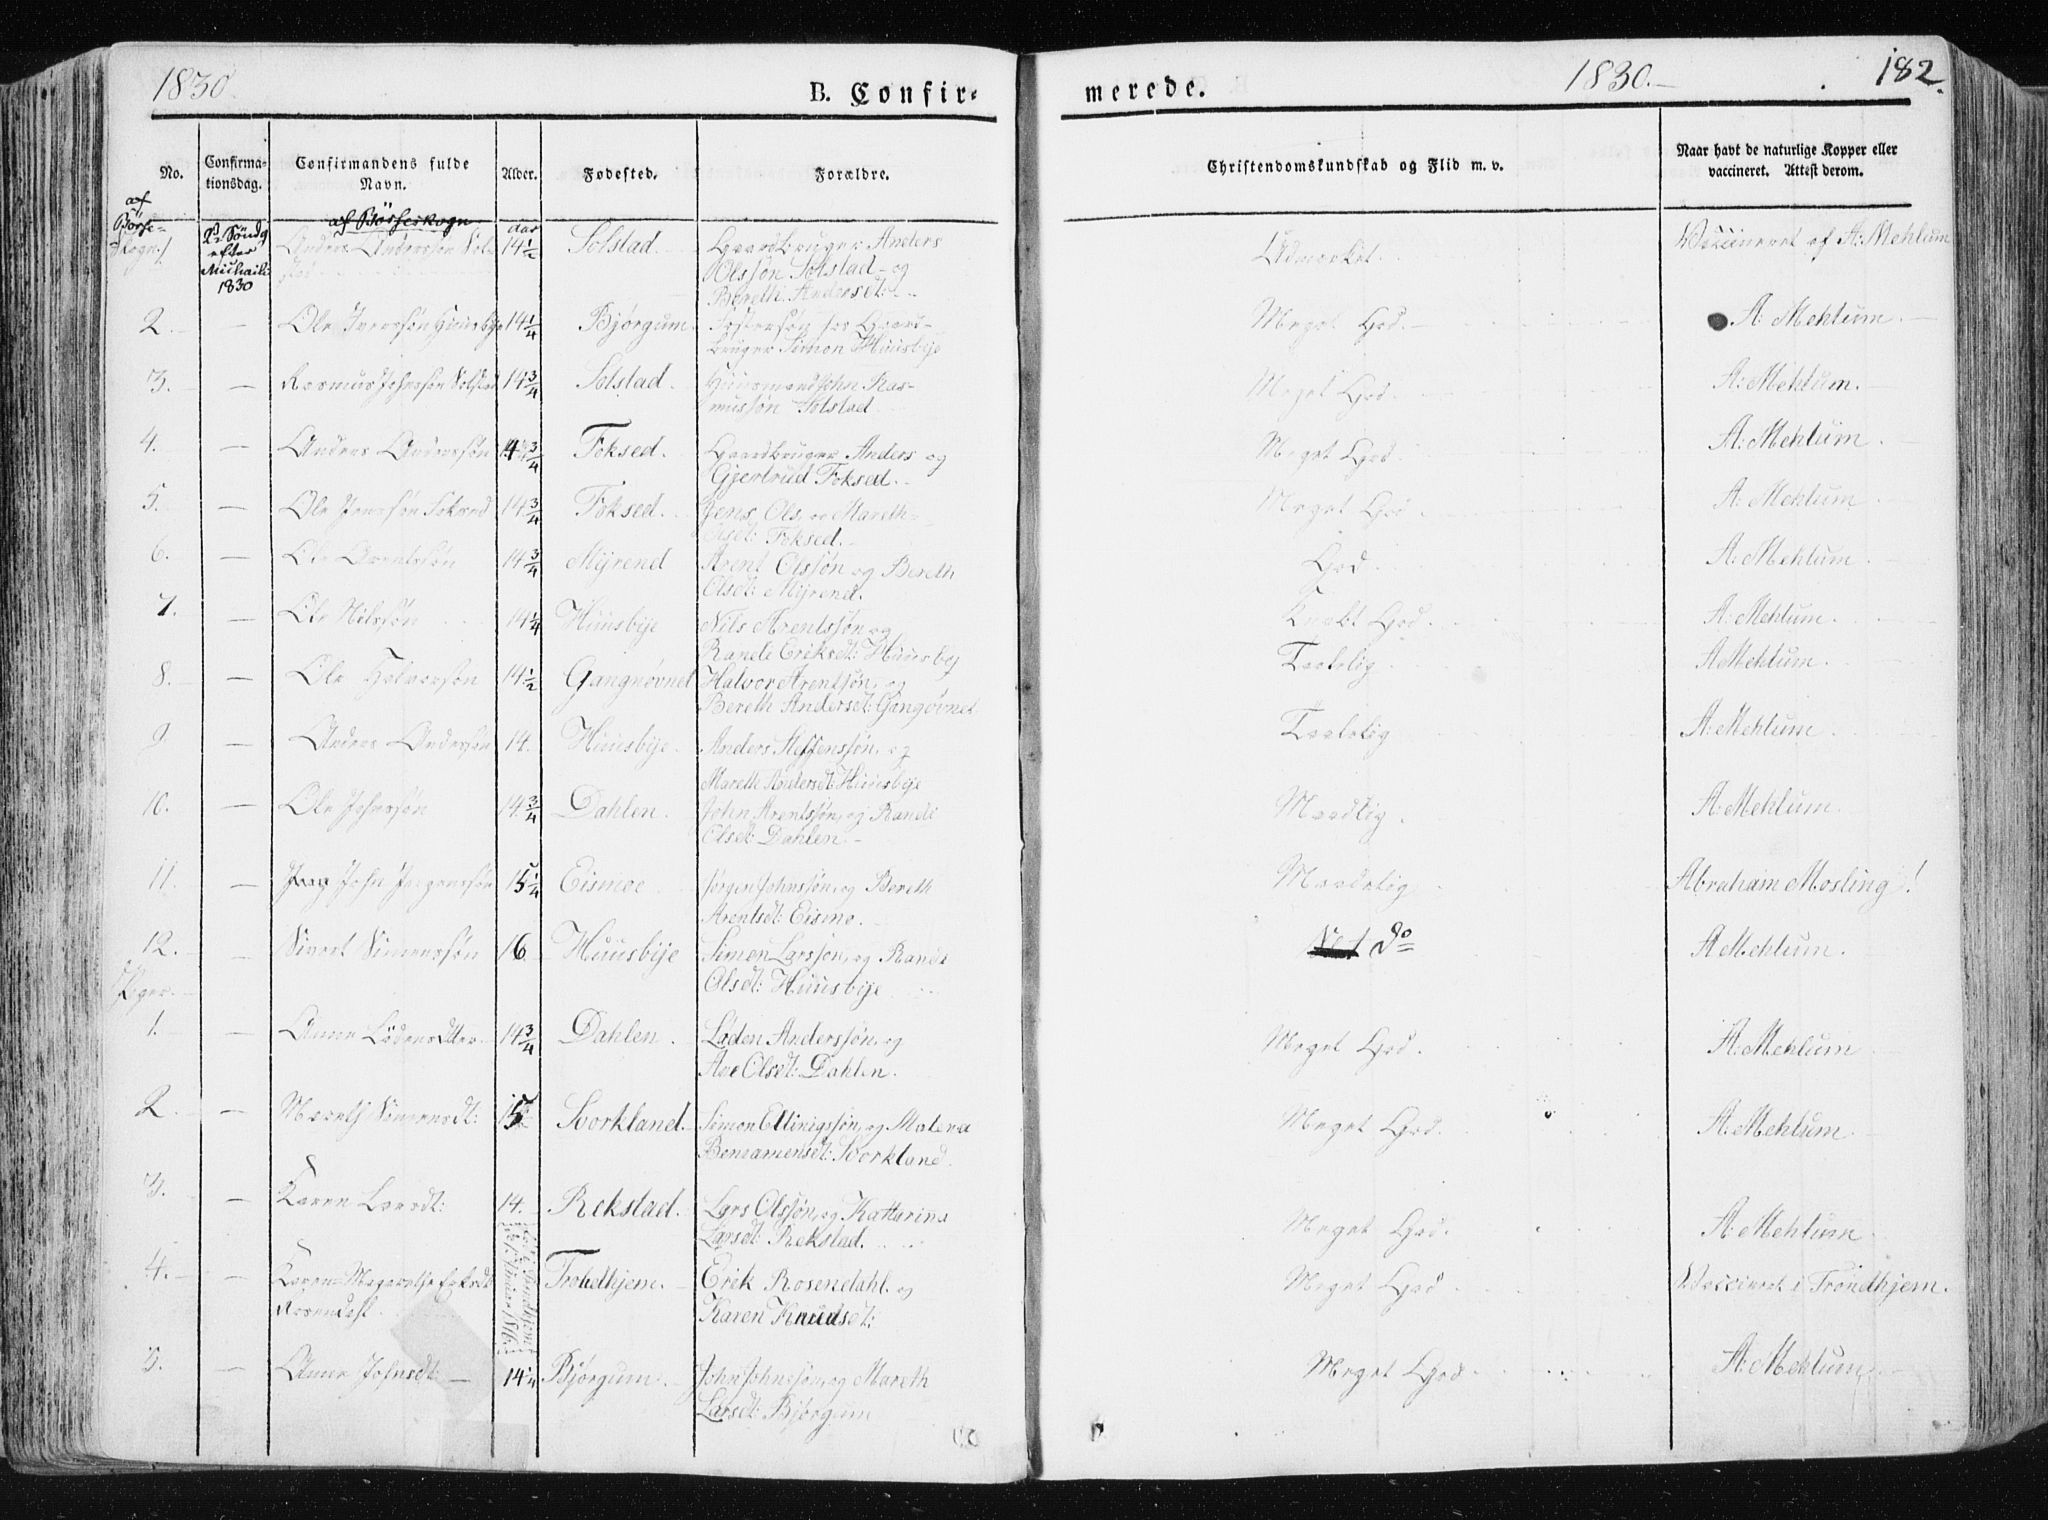 1830
B. Confir-
merede.
1830.
182.
No.
Confirma-
tionsdag.
Confirmandens fulde
Navn.
Alder.
Fødested.
Forældre.
Christendomskundskab og Flid m. v.
Naar havt de naturlige Kopper eller
vaccineret. Attest derom.
af
Børse-
skogn
af Børseskogn
aar
2d Søndg
efter
Michaeli
1830
Anders Anderssøn Sol-
stad
14 1/2
Solstad
Gaardbruger Anders
Olssøn Solstad og
Bereth Andersdt:
Udmærket
Vaccineret af A: Mehlum
2. — Ole Iverssøn Huusbye 14 1/4 Bjørgum Fostersøn hos Gaard-
bruger Simon Huusbye
Meget God. A: Mehlum.
3. — Rasmus Johnssøn Solstad 14 3/4 Solstad. Huusmand John Ras-
mussøn Solstad
Meget God. A: Mehlum.
4. — Anders Anderssøn 14 3/4 Foksed. Gaardbruger Anders og
Gjertrud Foksed.
Meget God A: Mehlum.
5. — Ole Jenssøn Foksed 14 3/4 Foksed. Jens Ols. og Mareth
Olsdt: Foksed.
Meget God A: Mehlum
6. — Ole Arentssøn 14 3/4 Myrend Arent Olssøn og Bereth
Olsdt: Myrend.
God A: Mehlum
7. — Ole Nilssøn 14 1/4 Huusbye Nils Arentssøn og
Rande Eriksdt: Huusby
Knapt God A: Mehlum.
8. — Ole Halvorssøn 14 1/2 Gangnøvnet Halvor Arentsøn, og
Bereth Andersdt: Gangøvnet
Taalelig A Mehlum.
9. — Anders Anderssøn 14. Huusbye. Anders Steffenssøn, og
Mareth Andersdt: Huusbye
Taalelig A: Mehlum.
10. — Ole Johnssøn 14 3/4 Dahlen. John Arentssøn, og Randi
Olsdt: Dahlen.
Maadelig. A: Mehlum.
11. — John Jørgenssøn 15 1/4 Eismoe Jørgen Johnssøn, og Bereth
Arentsdt: Eismo.
Maadelig Abraham Mosling!
12. — Sivert Simonssøn 16 Huusbye Simon Larssøn, og Rande
Olsdt: Huusbye
do A Mehlum.
Piger.
1. — Anne Lødensdtter 14 3/4 Dahlen. Løden Anderssøn, og
Ane Olsdt: Dahlen.
Meget God. A: Mehlum
2 — Mareth Simonsdt: 15 Sorkland. Simon Ellinigssøn, og Malena
Beniamensdt: Sorkland.
Meget God. A: Mehlum.
3. — Karen Larsdt: 14. Rekstad. Lars Olssøn, og Katharina
Larsdt: Rekstad.
Meget God. A: Mehlum.
4. — Karen Magarethe Eriksdt
Rosendahl
Trondhjem. Erik Rosendahl og
Karen Knudsdt:
Meget God Vaccineret i Trondhjem.
5. — Anne Johnsdt: 14 1/4 Bjørgum. John Johnssøn, og Mareth
Larsdt: Bjørgum
Meget God A: Mehlum